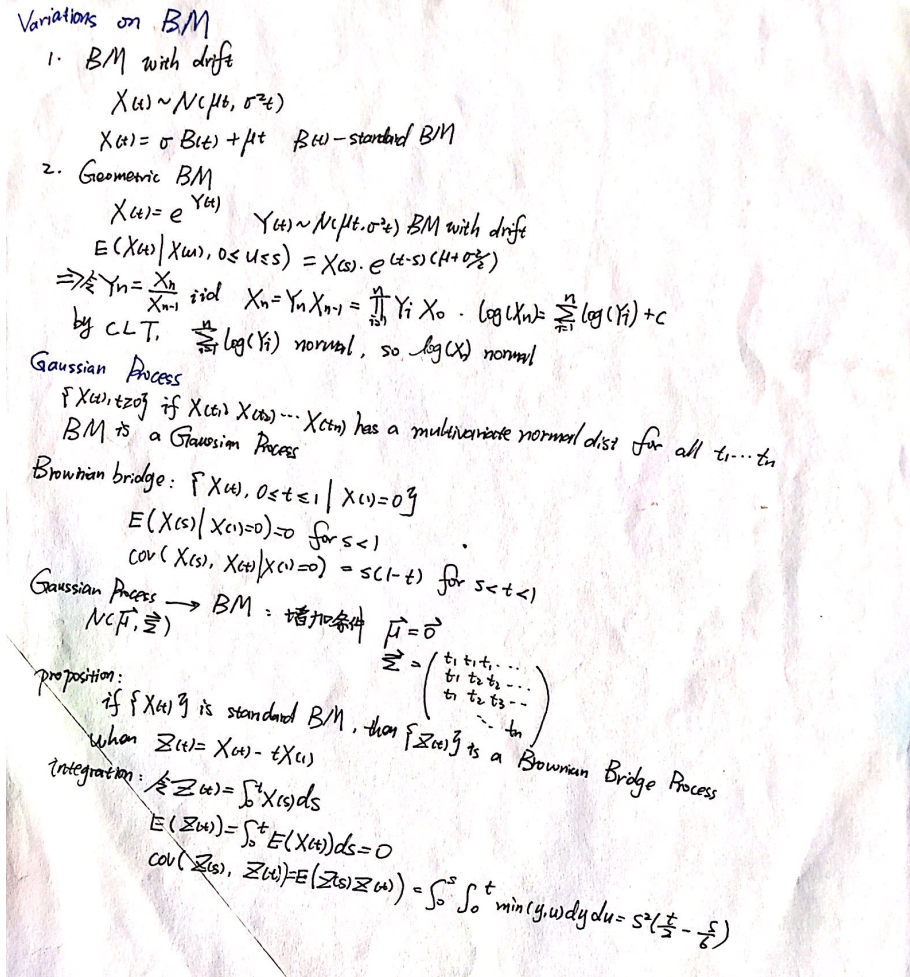 Variations on BM
1. BM with drift
X(t) ~ N(μt, σ²t)
X(t) = σ B(t) + μt B(t) - standard BM
2. Geometric BM
X(t) = e^{Y(t)} Y(t) ~ N(μt, σ²t) BM with drift
E(X(t) | X(u), 0≤u≤s) = X(s) · e^{(t-s)(μ+σ²/2)}
⇒ 令 Yn = Xn/Xn-1 iid Xn = Yn Xn-1 = ∏_{i=1}^{n} Yi X0 . log(Xn) = Σ_{i=1}^{n} log(Yi) + c
by CLT, Σ_{i=1}^{n} log(Yi) normal, so log(X) normal
Gaussian Process
{X(t), t≥0} if X(t1) X(t2) ... X(tn) has a multivariate normal dist for all t1...tn
BM is a Gaussian Process
Brownian bridge: {X(t), 0≤t≤1 | X(1)=0}
E(X(s) | X(1)=0) = 0 for s<1
cov(X(s), X(t) | X(1)=0) = s(1-t) for s<t<1
Gaussian Process → BM : 增加条件 μ⃗ = 0⃗
N(μ⃗, Σ⃗)
Σ⃗ = ( t1 t1 t1 ...
t1 t2 t2 ...
t1 t2 t3 ...
... tn )
proposition:
if {X(t)} is standard BM, then {Z(t)} is a Brownian Bridge Process
when Z(t) = X(t) - tX(1)
integration: 令 Z(t) = ∫_0^t X(s)ds
E(Z(t)) = ∫_0^t E(X(t))ds = 0
cov(Z(s), Z(t)) = E(Z(s)Z(t)) = ∫_0^s ∫_0^t min(y,u)dydu = s²(t/2 - s/6)